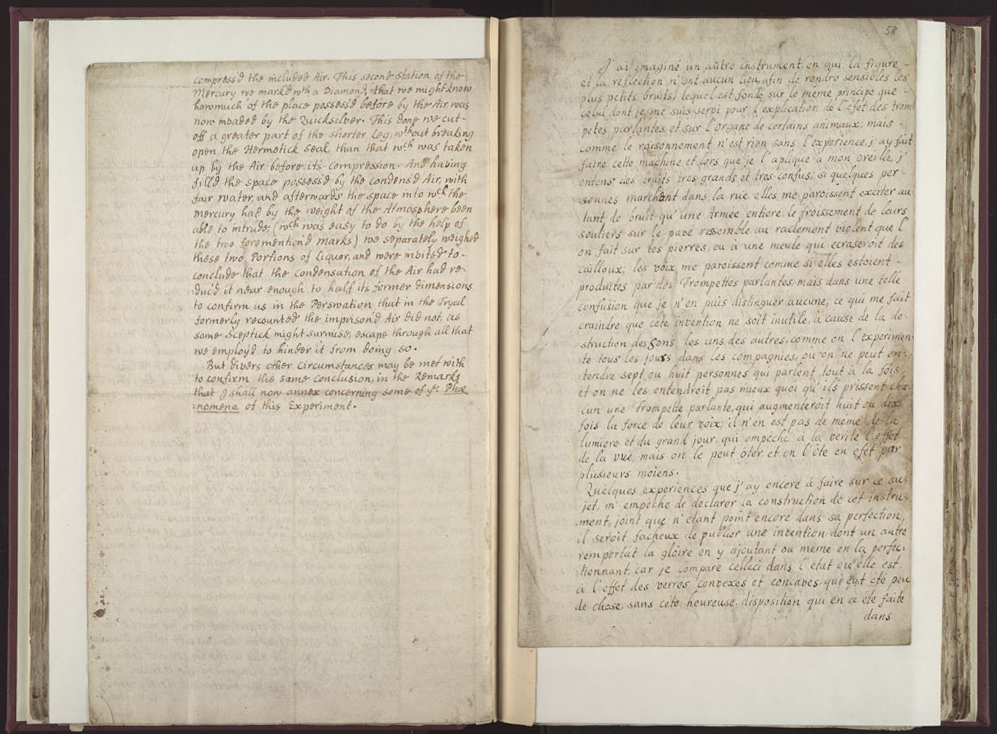 compress'd the included Air. This second station of the
Mercury we mark'd wth a Diamond, that we might know
how much of the place possess'd before by the Air was
now invaded by the Quicksilver. This done we cut-
off a greater part of the shorter Leg, wthout breaking
open the Hermetick Seal than that wch was taken
up by the Air before its compression. And having
fill'd the space possess'd by the condens'd Air, with
fair water, and afterwards the space into wch the
mercury had by the weight of the Atmosphere been
able to intrude, (wch was easy to do by the help of
the two forementiond marks) we separately weighed
these two Portions of Liquor, and were invited to-
conclude that the condensation of the Air had re-
duc'd it near enough to half its former dimensions
to confirm us in the Perswation that in the Tryal
formerly recounted the imprison'd Air did not, as
some Sceptick might surmise, escape through all that
we employ'd to hinder it from doing so.
But divers other Circumstances may be met with
to confirm the same conclusion, in the Remarks
that I shall now annex concerning some of ye. Phæ
nomena of this Experiment.
58
J'ai imaginé un autre instrument en qui la figure
et la reflection n'ont aucun lieu, afin de rendre sensibles les
plus petits bruits, lequel est fondé sur le meme principe que
celui dont je me suis servi pour l'explication de l'efet des trom
petes parlantes et sur l'organe de certains animaux; mais
comme le raisonnement n'est rien sans l'experience, j'ay fait
faire cette machine et lors que je l'aplique a mon oreille, j'
entens des bruits tres grands et tres confus; si quelques per
sonnes marchent dans la rue elles me paroissent exciter au
tant de bruit qu'une Armée entiere, le froissement de leurs
souliers sur le pavé ressemble au raclement violent que l'
on fait sur des pierres, ou à une meule qui ecraseroit des
cailloux; les voix me paroissent comme si elles estoient
produites par des Trompettes parlantes mais dans une telle
confusion que je n'en puis distinguer aucune, ce qui me fait
craindre que cete invention ne soit inutile, à cause de la de-
struction des sons les uns des autres, comme on l'experimen
te tous les jours dans les compagnies, ou on ne peut en-
tendre sept ou huit personnes qui parlent tout à la fois
et on ne les entendroit pas mieux quoi qu'ils prissent cha
cun une Trompette parlante, qui augmenteroit huit ou dix
fois la force de leur voix; il n'en est pas de meme de la
lumiere et du grand jour qui empeche a la verité l'effet
de la vüe, mais on le peut ôter, et on l'ôte en efet par
plusieurs moiens.
Quelques experiences que j'ay encore à faire sur ce su
jet, m'empeche de declarer la construction de cet instru-
ment, joint que n'etant point encore dans sa perfection,
il seroit facheux de publier une invention dont un autre
remportat la gloire en y ajoutant ou meme en la perfec-
tionnant, car je compare celleci dans l'etat ou elle est
à l'effet des verres convexes et concaves qui eut eté peu
de chose, sans cete heureuse disposition qui en a eté faite
dans